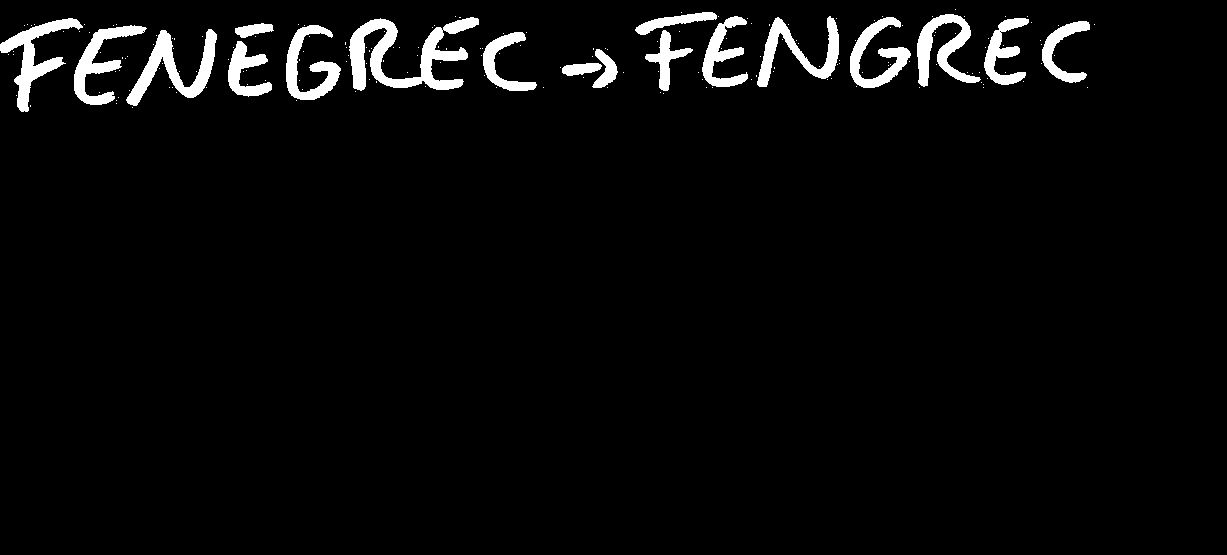 FENEGREC → FENGREC